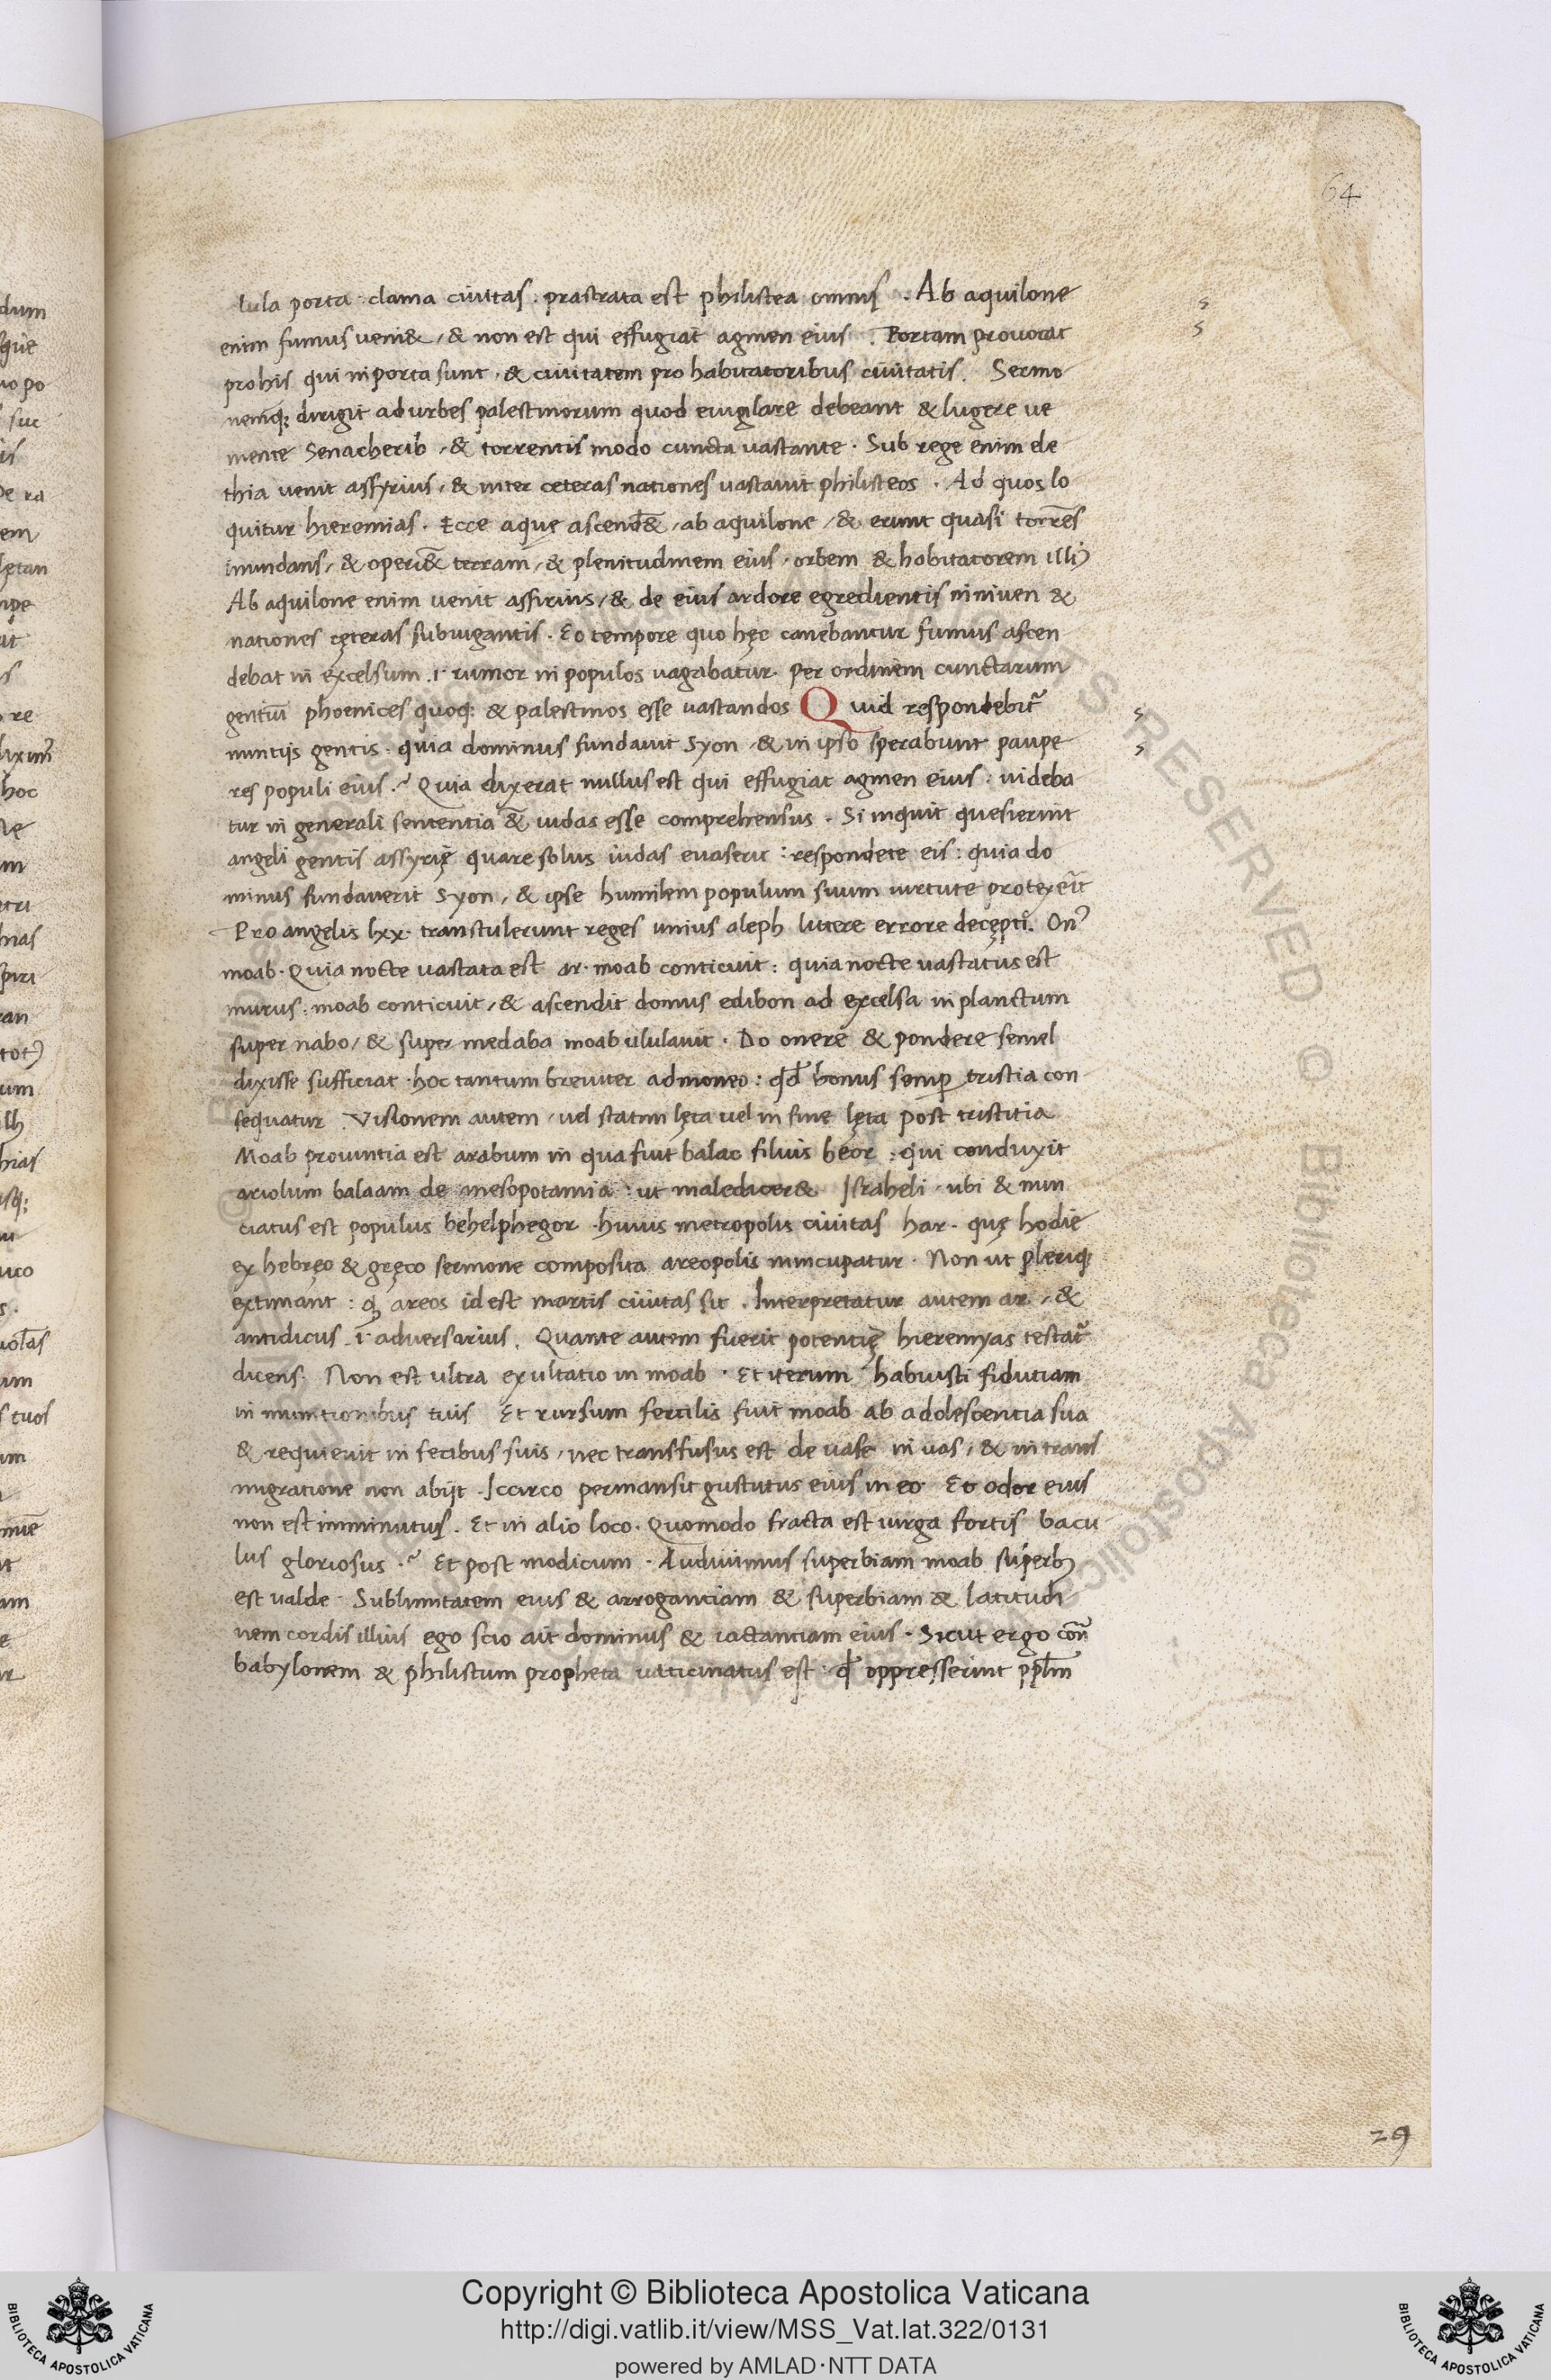 64
lula porta · clama ciuitas · prastrata est philistea omnis . Ab aquilone
enim fumus ueni& , & non est qui effugiat agmen eius . Portam prouocat
pro his qui in porta sunt · & ciuitatem pro habitatoribus ciuitatis . Sermo
nemq; dirigit ad urbes palestinorum quod eiuglare debeant & lugere ue
niente Senacherib , & torrentis modo cuncta uastante · Sub rege enim eze
chia uenit assyrius , & inter ceteras nationes uastauit philisteos . Ad quos lo
quitur hieremias . Ecce aque ascend& , ab aquilone , & erunt quasi torrēs
inundans , & operi& terram , & plenitudinem eius · orbem & habitatorem illiꝰ
Ab aquilone enim uenit assirius , & de eius ardore egredientis niniuen &
nationes cęteras subiugantis . Eo tempore quo hęc canebantur fumus ascen
debat in excelsum .i· rumor in populos uagabatur · per ordinem cunctarum
gentiū phoenices quoq; & palestinos esse uastandos Quid respondebit᷑
nuntijs gentis · quia dominus fundauit Syon , & in ipso sperabunt paupe
res populi eius ·? Quia dixerat nullus est qui effugiat agmen eius : uideba
tur in generali sententia & iudas esse comprehensus . Si inquit quesierint
angeli gentis assyrię quare solus iudas euaserit : respondete eis : quia do
minus fundauerit Syon , & ipse humilem populum suum uirtute protexeīt
Pro angelis lxx · transtulerunt reges unius aleph littere errore decępti . Onꝰ
moab · Quia nocte uastata est ar · moab conticuit : quia nocte uastatus est
murus : moab conticuit , & ascendit domus edibon ad excelsa in planctum
super nabo , & super medaba moab ululauit · Do onere & pondere semel
dixisse sufficiat · hoc tantum breuiter admoneo : qđ bonus semꝑ tristia con
sequatur . Visionem autem , uel statim lęta uel in fine lęta post tristitia
Moab prouintia est arabum in qua fuit balac filius beor : qui conduxit
ariolum balaam de mesopotamia : ut maledicer& Israheli · ubi & nun
ciatus est populus behelphegor · huius metropolis ciuitas har · quę hodie
ex hebręo & gręco sermone composita areopolis nuncupatur · Non ut plerique
extimant : ꝙ areos id est martis ciuitas sit . Interpretatur autem ar , &
antidicus .i· aduersarius . Quante autem fuerit potentię hieremyas testat᷑
dicens · Non est ultra exultatio in moab · Et iterum habuisti fidutiam
in munitionibus tuis Et rursum fertilis fuit moab ab adolescentia sua
& requieuit in fecibus suis , nec transfusus est de uase in uas , & in trans
migratione non abijt . Iccirco permansit gustutus eius in eo · Et odor eius
non est imminutus . Et in alio loco · Quomodo fracta est uirga fortis bacu
lus gloriosus ·? Et post modicum · Audiuimus superbiam moab superbꝰ
est ualde · Sublimitatem eius & arrogantiam & superbiam & latitudi
nem cordis illius ego scio ait dominus & iactantiam eius · Sicut ergo contᷓ
babylonem & philistum propheta uaticinatus est : qđ oppresserint pplm̄
29
Copyright © Biblioteca Apostolica Vaticana
http://digi.vatlib.it/view/MSS_Vat.lat.322/0131
powered by AMLAD·NTT DATA